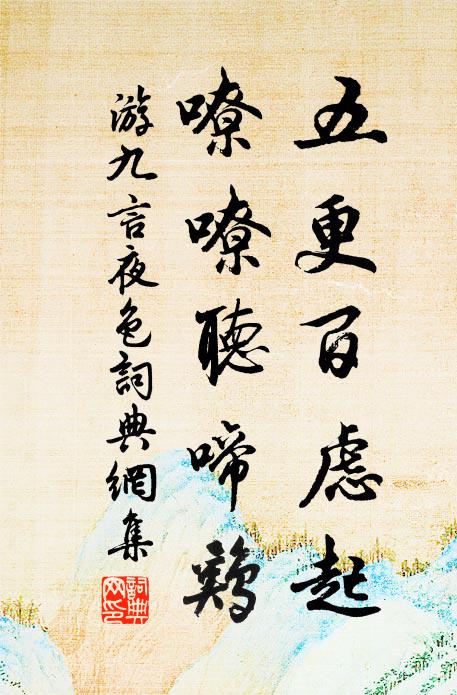 五更百慮起
嘹嘹聽啼鷄
游九言夜色詞典網集
詞典